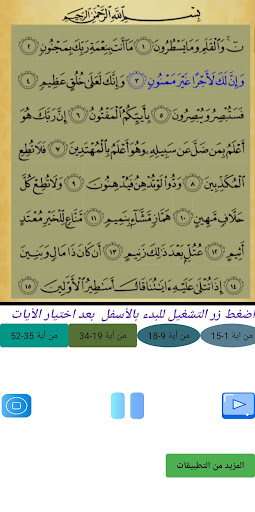 بِسْمِ اللَّهِ الرَّحْمَٰنِ الرَّحِيمِ
نٓ ۚ وَالْقَلَمِ وَمَا يَسْطُرُونَ ١ مَا أَنتَ بِنِعْمَةِ رَبِّكَ بِمَجْنُونٍ ٢
وَإِنَّ لَكَ لَأَجْرًا غَيْرَ مَمْنُونٍ ٣ وَإِنَّكَ لَعَلَىٰ خُلُقٍ عَظِيمٍ ٤
فَسَتُبْصِرُ وَيُبْصِرُونَ ٥ بِأَييِّكُمُ الْمَفْتُونُ ٦ إِنَّ رَبَّكَ هُوَ
أَعْلَمُ بِمَن ضَلَّ عَن سَبِيلِهِ وَهُوَ أَعْلَمُ بِالْمُهْتَدِينَ ٧ فَلَا تُطِعِ
الْمُكَذِّبِينَ ٨ وَدُّوا لَوْ تُدْهِنُ فَيُدْهِنُونَ ٩ وَلَا تُطِعْ كُلَّ
حَلَّافٍ مَّهِينٍ ١٠ هَمَّازٍ مَّشَّاءٍ بِنَمِيمٍ ١١ مَّنَّاعٍ لِّلْخَيْرِ مُعْتَدٍ
أَثِيمٍ ١٢ عُتُلٍّ بَعْدَ ذَٰلِكَ زَنِيمٍ ١٣ أَن كَانَ ذَا مَالٍ وَبَنِينَ
١٤ إِذَا تُتْلَىٰ عَلَيْهِ آيَاتُنَا قَالَ أَسَاطِيرُ الْأَوَّلِينَ ١٥
اضغط زر التشغيل للبدء بالأسفل بعد اختيار الأيات
من أية 1-15
من اية 9-18
من أية 19-34
من أية 35-52
المزيد من التطبيقات